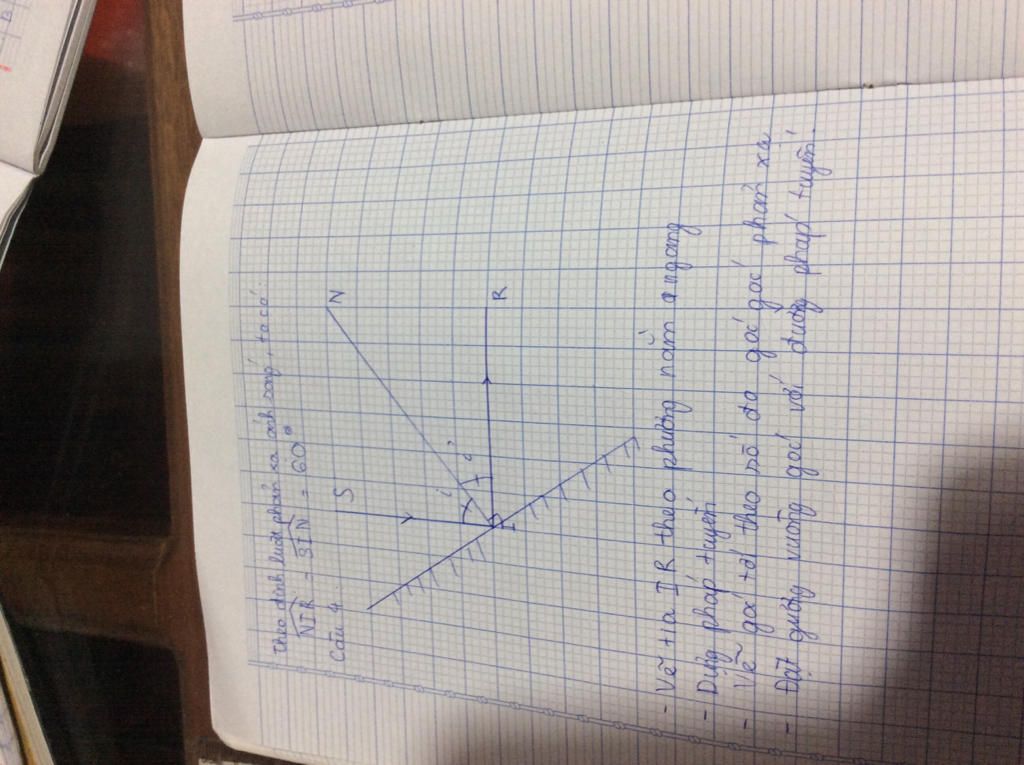 Theo định luật phản xạ ánh sáng, ta có:
NIR = SIN = 60°
Câu 4:
S
N
i
i'
I
R
- Vẽ tia IR theo phương nằm ngang
- Dựng pháp tuyến
- Vẽ góc tới theo số đo góc góc phản xạ
- Đặt gương vuông góc với đường pháp tuyến.